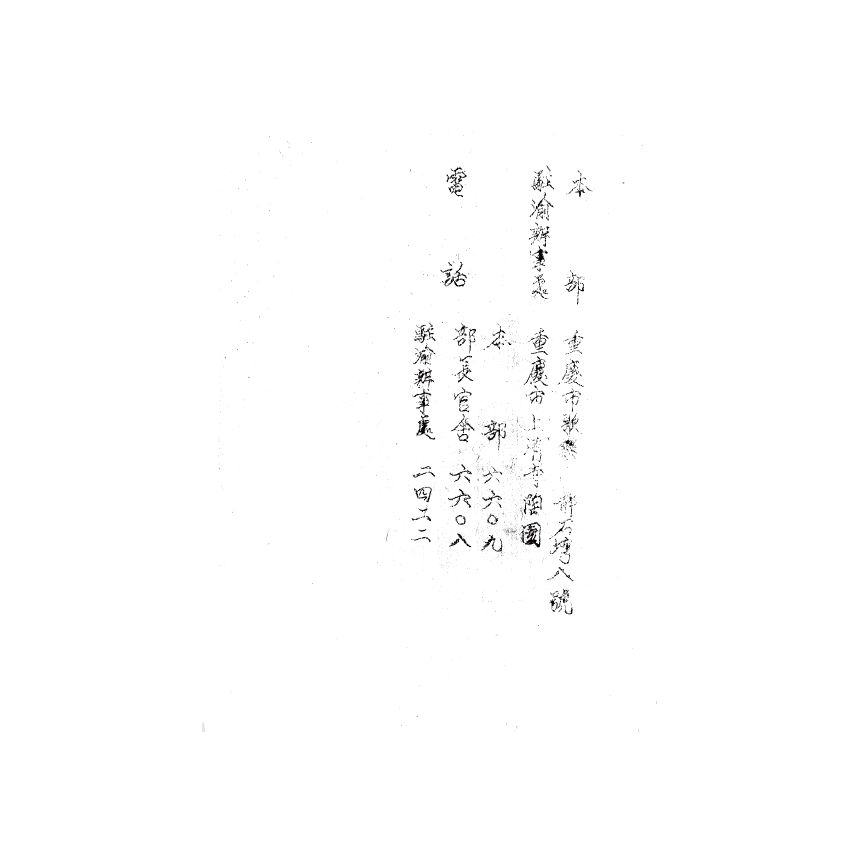 本部 重慶市歌樂 石塆八號
駐渝辦事處 重慶市上清寺陶園
電話
本部 六六〇九
部長官舍 六六〇八
駐渝辦事處 二四二二